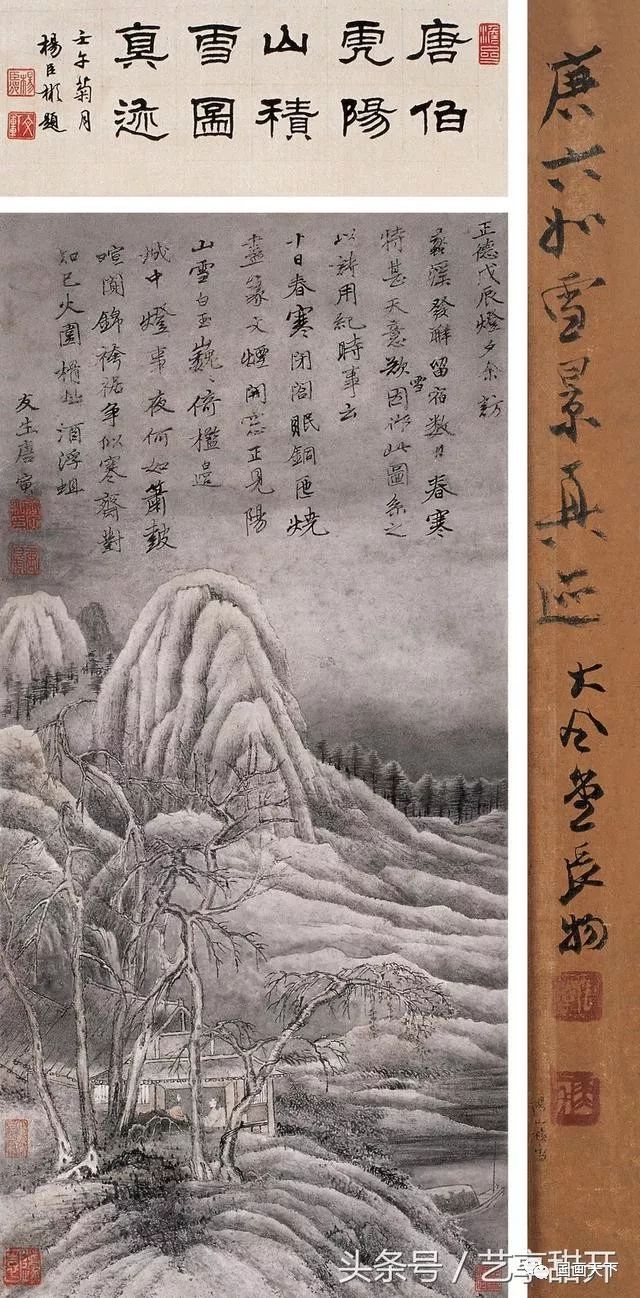 唐伯
虎陽
山積
雪圖
真迹
壬午菊月
楊臣彬題
正德戊辰燈夕余訪
溪發解留宿數日春寒
特甚天意欲雪因作此圖系之
以詩用紀時事云
十日春寒閉閤眠銅匜燒
盡篆文煙開窓正見陽
山雪白玉巍〻倚檻邊
城中燈事夜何如簫鼓
喧闐錦袴裾争似寒齋對
知已火圍榾柮酒浮蛆
友生唐寅
唐六如雪景真迹
大風堂長物
头条号 / 艺享甜开
国画天下